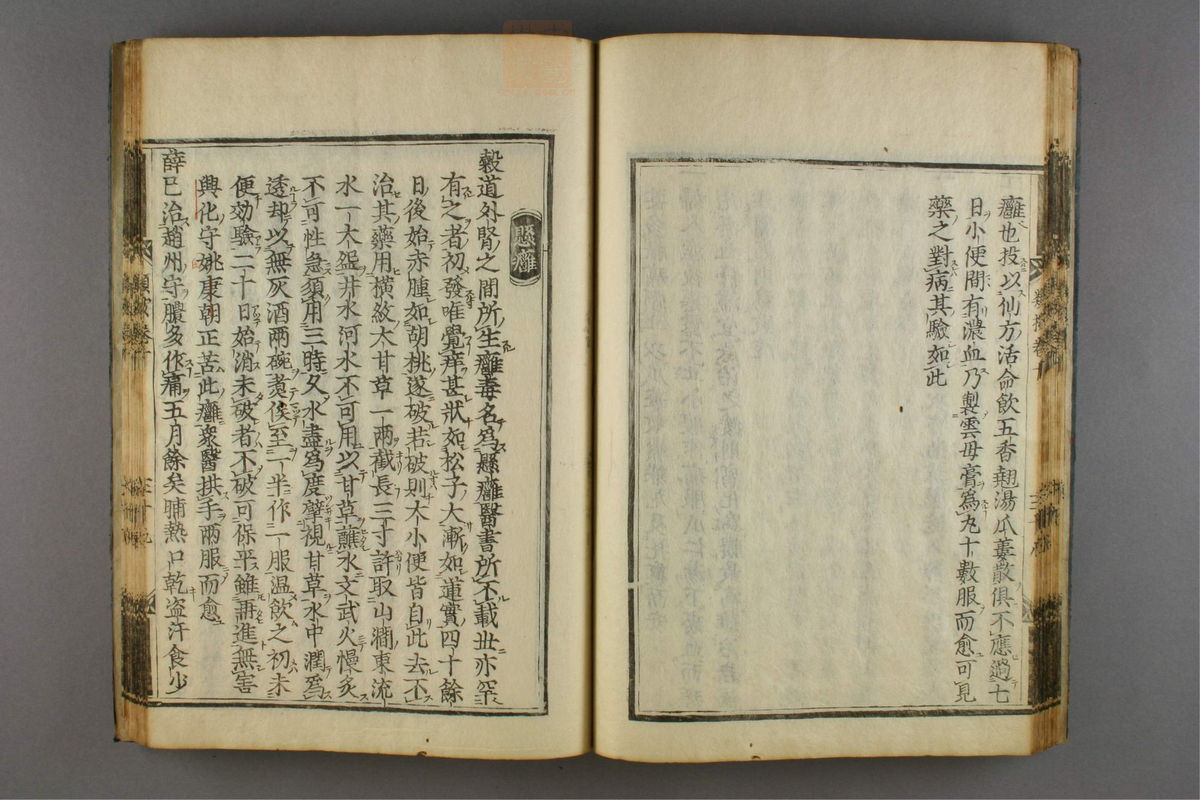 癰也投以仙方活命飲五香翹湯瓜蔞散俱不應過七
日小便間有濃血乃製雲母膏爲丸十數服而愈可見
藥之對病其驗如此
懸癰
穀道外腎之間所生癰毒名爲懸癰醫書所不載世亦罕
有之者初發唯覺痒甚狀如松子大漸如蓮實四十餘
日後始赤腫如胡桃遂破若破則大小便皆自此去不
治其藥用横紋大甘草一兩截長三寸許取山澗東流
水一大椀井水河水不可用以甘草蘸水文武火慢炙
不可性急須用三時久水盡爲度擘視甘草水中潤爲
透却以無灰酒兩碗煮俟至一半作一服温飲之初未
便効驗二十日始消未破者不破可保平雖再進無害
興化守姚康朝正苦此癰衆醫拱手兩服而愈
薛已治趙州守膿多作痛五月餘矣晡熱口乾盗汗食少